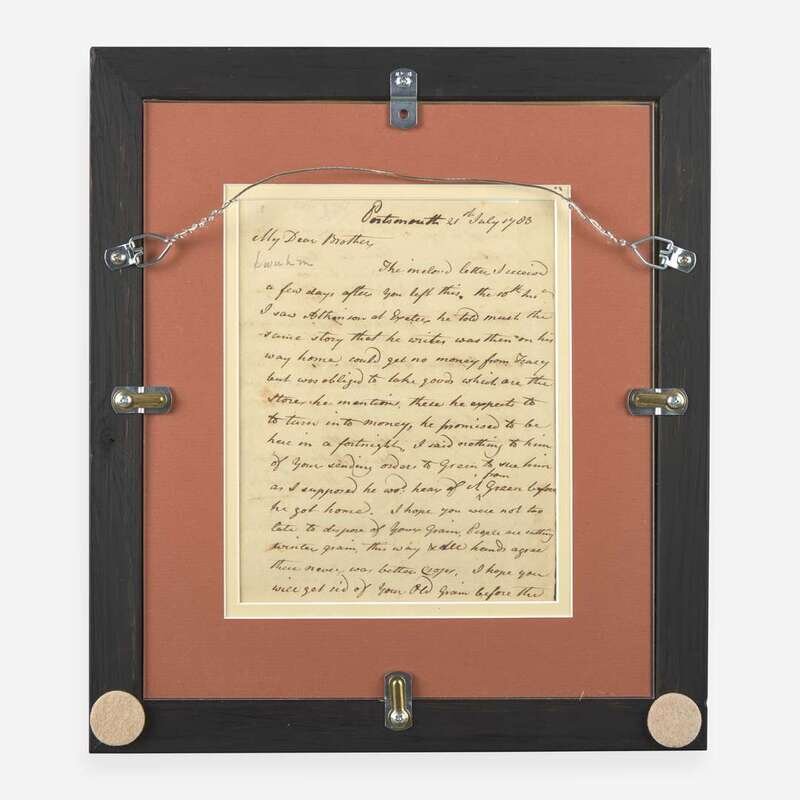 Portsmouth 21st July 1783
My Dear Brother,
The inclosd letter I received
a few days after you left this, the 10th
I saw Atkinson at Exeter, he told much the
same story that he writes was then on his
way home could get no money from Tracy
but was obligd to take goods which are the
Stores he mentions, these he expects to
to turn into money, he promised to be
here in a fortnight, I said nothing to him
of Your sending orders to Green to sue him
as I supposed he wod. hear of it from Green before
he got home. I hope you were not too
late to dispose of Your Grain, People are cutting
winter grain this way & all hands agree
there never was better Crops. I hope you
will get rid of Your Old Grain before the